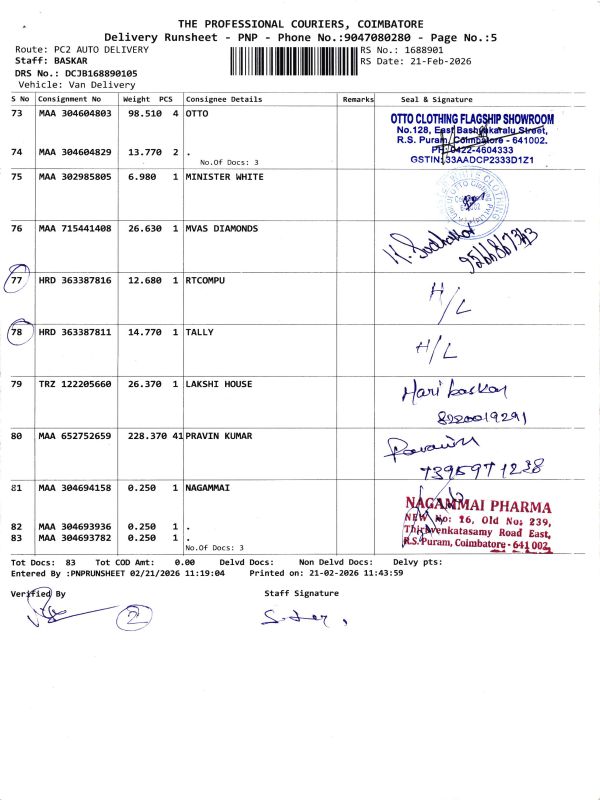 THE PROFESSIONAL COURIERS, COIMBATORE
Delivery Runsheet - PNP - Phone No.:9047080280 - Page No.:5
Route: PC2 AUTO DELIVERY
RS No.: 1688901
Staff: BASKAR
RS Date: 21-Feb-2026
DRS No.: DCJB168890105
Vehicle: Van Delivery
S No Consignment No Weight PCS Consignee Details Remarks Seal & Signature
73 MAA 304604803 98.510 4 OTTO
OTTO CLOTHING FLAGSHIP SHOWROOM
No.128, East Bashyakaralu Street,
R.S. Puram, Coimbatore - 641002.
PH: 0422-4604333
GSTIN: 33AADCP2333D1Z1
74 MAA 304604829 13.770 2 .
No.Of Docs: 3
75 MAA 302985805 6.980 1 MINISTER WHITE
76 MAA 715441408 26.630 1 MVAS DIAMONDS
77 HRD 363387816 12.680 1 RTCOMPU
H/L
78 HRD 363387811 14.770 1 TALLY
H/L
79 TRZ 122205660 26.370 1 LAKSHI HOUSE
Hari baskar
8220019291
80 MAA 652752659 228.370 41 PRAVIN KUMAR
7395971238
81 MAA 304694158 0.250 1 NAGAMMAI
NAGAMMAI PHARMA
NEW No: 16, Old No: 239,
Thiruvenkatasamy Road East,
R.S.Puram, Coimbatore - 641 002.
82 MAA 304693936 0.250 1 .
83 MAA 304693782 0.250 1 .
No.Of Docs: 3
Tot Docs: 83 Tot COD Amt: 0.00 Delvd Docs: Non Delvd Docs: Delvy pts:
Entered By :PNPRUNSHEET 02/21/2026 11:19:04 Printed on: 21-02-2026 11:43:59
Verified By
Staff Signature
2